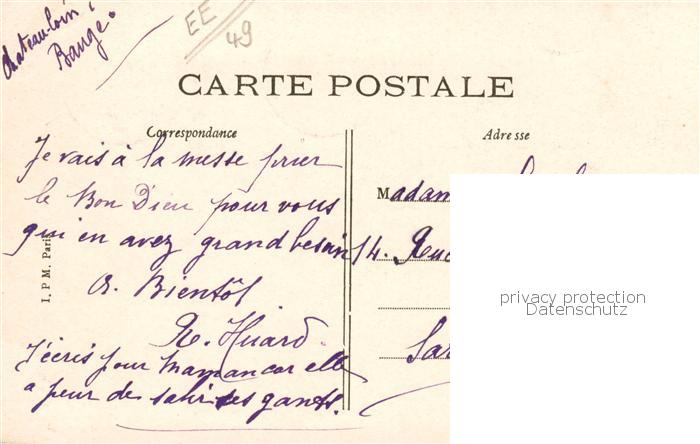 Chateau-loin
Baugé.
EE
49
CARTE POSTALE
Correspondance
Adresse
Je vais à la messe prier
le Bon Dieu pour vous
qui en avez grand besoin
A. Bientôt
R. Huard
J'écris pour Maman car elle
a peur de salir ses gants.
I. P. M. Paris
Madam
14. Rue
privacy protection
Datenschutz